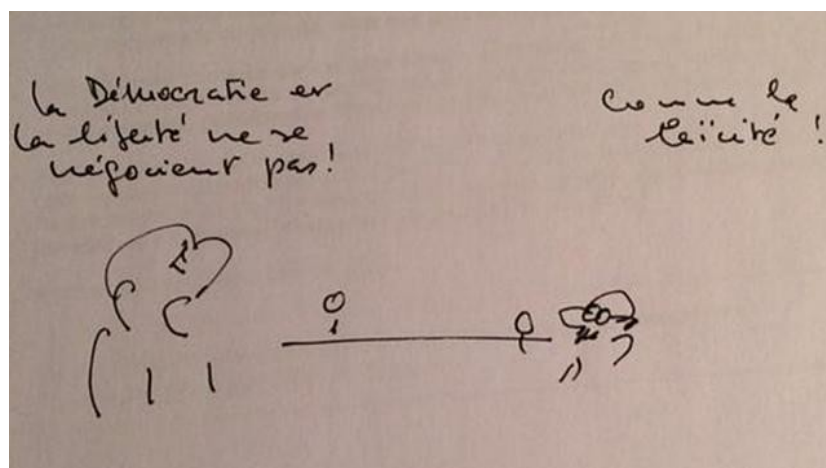 la Démocratie et
la liberté ne se
négocient pas!
Comme la
laïcité !